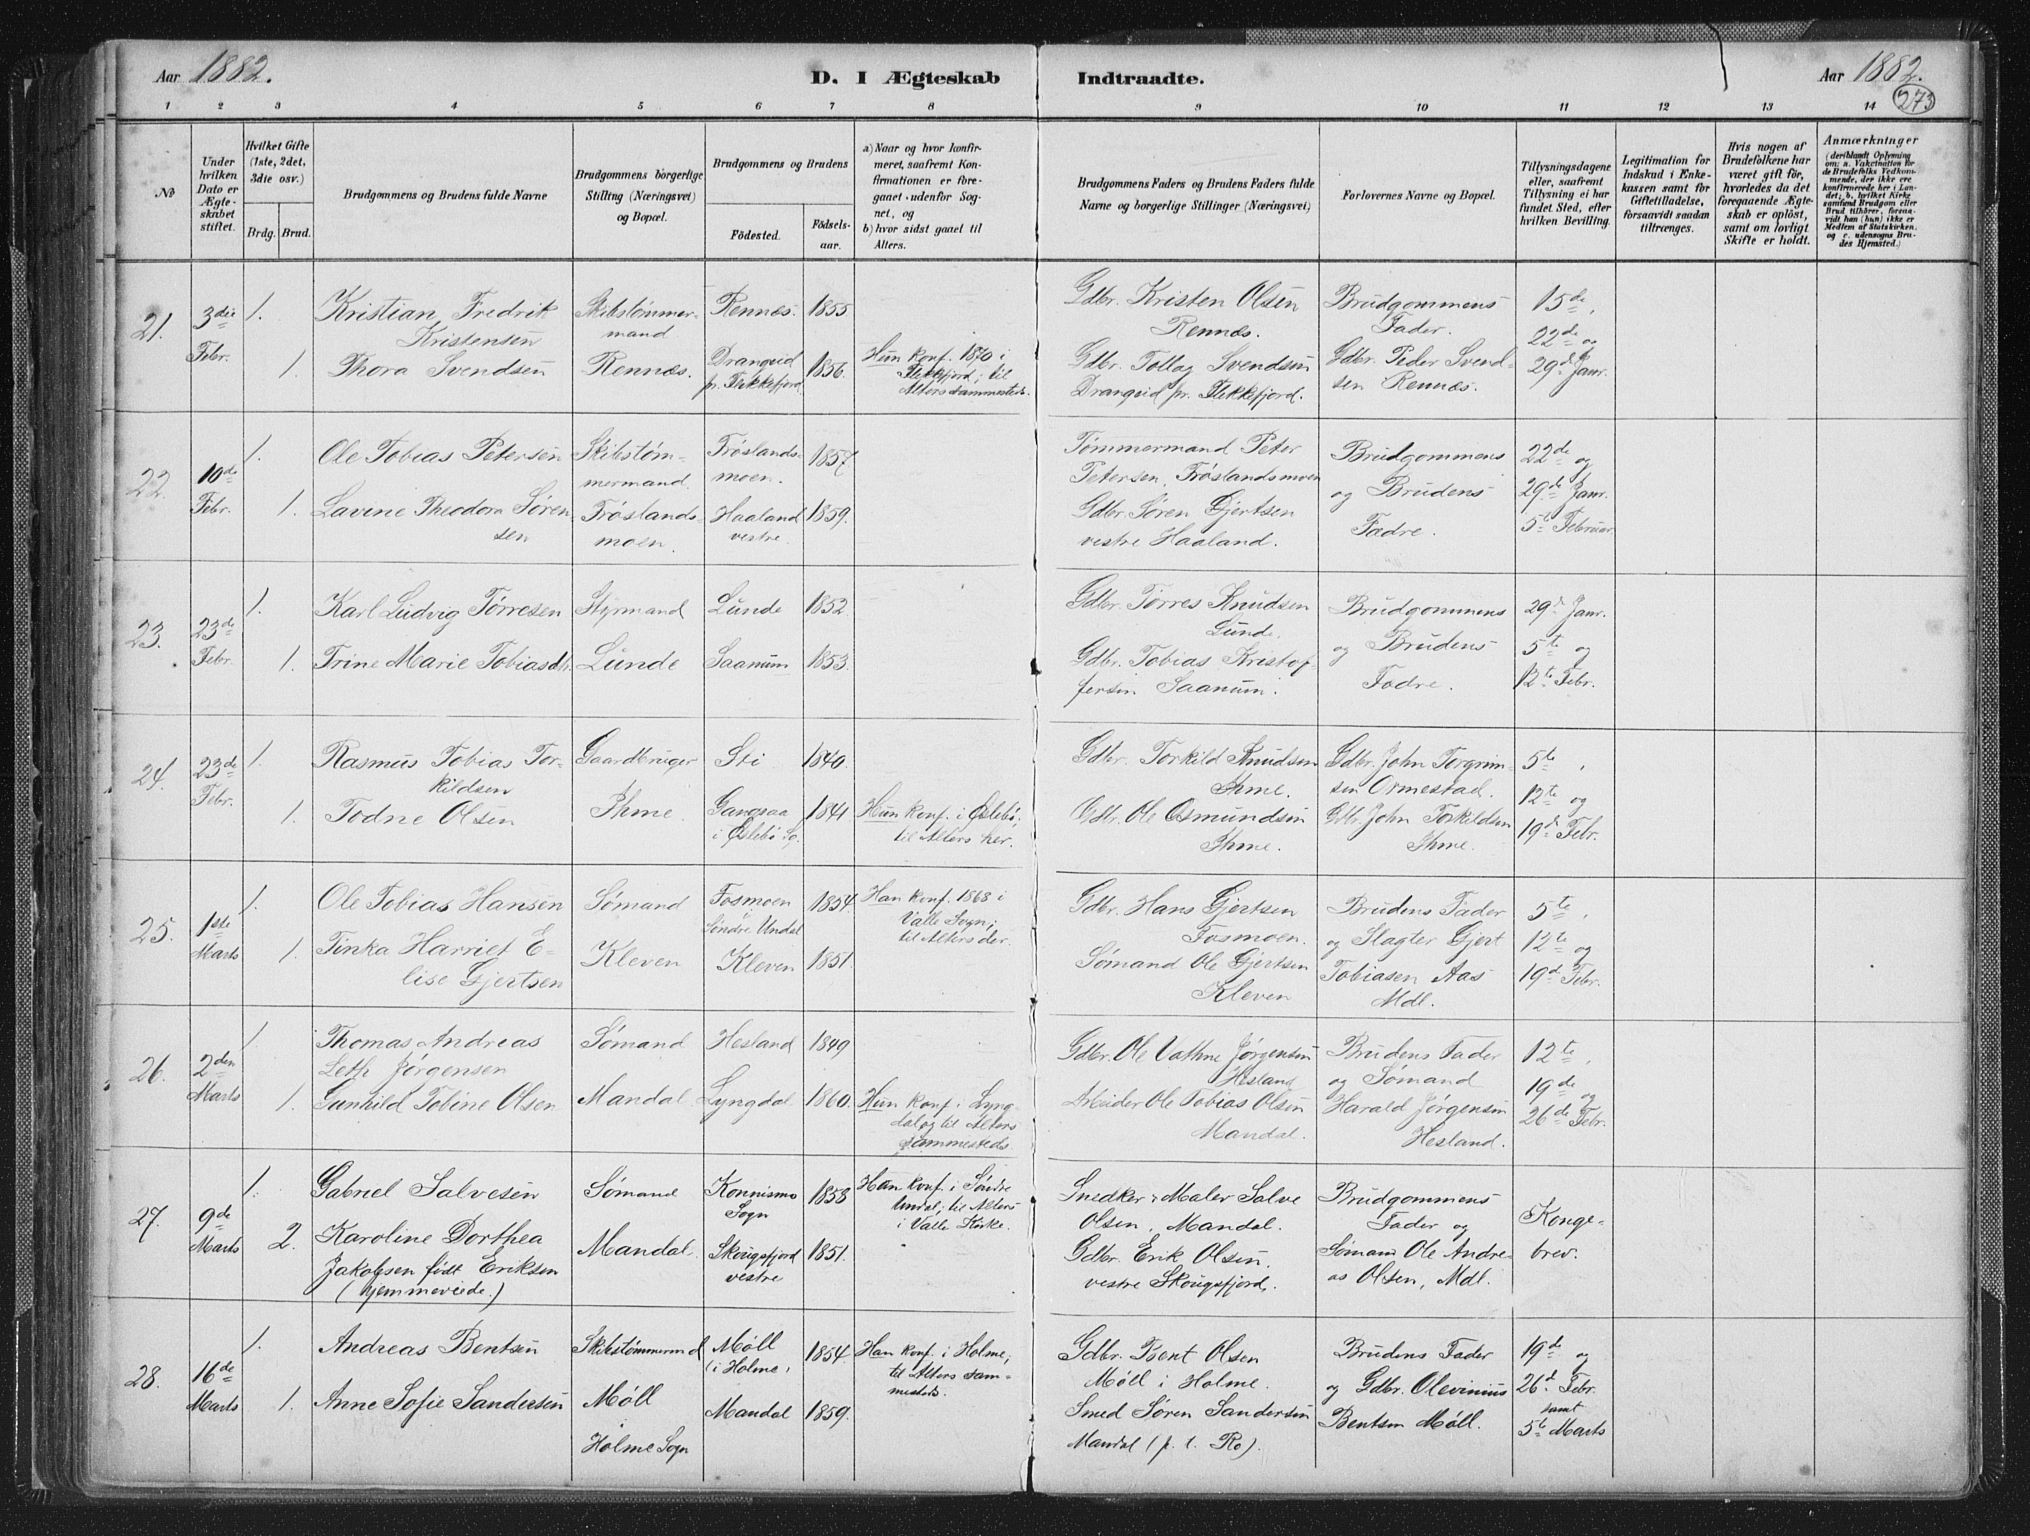 Aar 1882.
D. I Ægteskab Indtraadte.
Aar 1882.
273
1 2 3 4 5 6 7 8 9 10 11 12 13 14
No
Under hvilken Dato er Ægteskabet stiftet.
Hvilket Gifte (1ste, 2det, 3die osv.)
Brdg. Brud.
Brudgommens og Brudens fulde Navne
Brudgommens borgerlige Stilling (Næringsvei) og Bopæl.
Brudgommens og Brudens
Fødested. Fødselsaar.
a) Naar og hvor konfirmeret, saafremt Konfirmationen er foregaaet udenfor Sognet, og
b) hvor sidst gaaet til Alters.
Brudgommens Faders og Brudens Faders fulde Navne og borgerlige Stillinger (Næringsvei)
Forlovernes Navne og Bopæl.
Tillysningsdagene eller, saafremt Tillysning ei har fundet Sted, efter hvilken Bevilling.
Legitimation for Indskud i Enkekassen samt for Giftetilladelse, forsaavidt saadan tiltrænges.
Hvis nogen af Brudefolkene har været gift før, hvorledes da det foregaaende Ægteskab er opløst, samt om lovligt Skifte er holdt.
Anmærkninger
(deriblandt Oplysning om: a. Vakcination for de Brudefolks Vedkommende, der ikke ere konfirmerede her i Landet; b. hvilket Kirkesamfund Brudgom eller Brud tilhører, forsaavidt han (hun) ikke er Medlem af Statskirken, og c. udensogns Brudes Hjemsted.)
21.
3die Febr.
1.
Kristian Fredrik Kristensen
Skibstømmermand
Rennæs.
1855
Gdbr. Kristen Olsen Rennæs.
Brudgommens Fader.
15de, 22de og 29de Janr.
1
Thora Svendsen
Rennæs.
Drangeid pr. Flekkefjord
1856.
Hun konf. 1870 i Flekkefjord; til Alters sammesteds.
Gdbr. Tollag Svendsen Drangeid pr. Flekkefjord.
Gdbr. Peder Svendsen Rennæs.
22.
10de Febr.
1.
Ole Tobias Petersen
Skibstømmermand.
Frøslandsmoen.
1857
Tømmermand Peter Petersen, Frøslandsmoen
Brudgommens og Brudens Fadre.
22de og 29de Janr. 5te Februar
1.
Lavine Theodora Sørensen
Frøslandsmoen.
Haaland vestre.
1859.
Gdbr. Søren Gjertsen vestre Haaland.
23.
23de Febr.
1.
Karl Ludvig Tørresen
Styrmand
Lunde
1852
Gdbr. Tørres Knudsen Lunde.
Brudgommens og Brudens Fadre.
29de Janr. 5te og 12te Febr.
1.
Trine Marie Tobiasdtr.
Lunde
Saanum
1853.
Gdbr. Tobias Kristofersen Saanum.
24.
23de Febr.
1.
Rasmus Tobias Torkildsen
Gaardbruger
Sti
1840.
Gdbr. Torkild Knudsen Ihme.
Gdbr. John Torgrimsen Ormestad.
5te, 12te og 19de Febr.
1.
Todne Olsen
Ihme.
Gangsaa i Øslebø Sg.
1841
Hun konf. i Øslebø; til Alters her.
Gdbr. Ole Osmundsen Ihme.
Gdbr. John Torkildsen Ihme.
25.
1ste Marts
1.
Ole Tobias Hansen
Sømand
Fosmoen Søndre Undal
1854.
Han konf. 1868 i Valle Sogn; til Alters der.
Gdbr. Hans Gjertsen Fosmoen.
Brudens Fader og Slagter Gjert Tobiasen Aas Mdl.
5te, 12te og 19de Febr.
1.
Tinka Harriet Elise Gjertsen
Kleven
Kleven
1851.
Sømand Ole Gjertsen Kleven
26.
2den Marts
1
Thomas Andreas Leth Jørgensen
Sømand
Hesland
1849
Gdbr. Ole Vathne Jørgensen Hesland
Brudens Fader og Sømand Harald Jørgensen Hesland.
12te, 19de og 26de Febr.
1.
Gunhild Tobine Olsen
Mandal.
Lyngdal
1860.
Hun konf. i Lyngdal og til Alters sammesteds
Arbeider Ole Tobias Olsen Mandal.
27.
9de Marts
1.
Gabriel Salvesen
Sømand
Konnismo Sogn
1858
Han konf. i Søndre Undal; til Alters i Valle Kirke.
Snedker & Maler Salve Olsen, Mandal.
Brudgommens Fader og Sømand Ole Andreas Olsen, Mdl.
Kongebrev.
2.
Karoline Dorthea Jakobsen født Eriksen (hjemmeviede.)
Mandal.
Skougsfjord vestre
1851.
Gdbr. Erik Olsen. vestre Skougsfjord.
28.
16de Marts
1.
Andreas Bentsen
Skibstømmermd
Møll i Holme,
1854
Han konf. i Holme; til Alters sammesteds.
Gdbr. Bent Olsen Møll i Holme.
Brudens Fader og Gdbr. Olevinius Bentsen Møll.
19de og 26de Febr. samt 5te Marts
1.
Anne Sofie Sandersen
Møll Holme Sogn
Mandal
1859.
Smed Søren Sandersen Mandal (p. t. Ro).